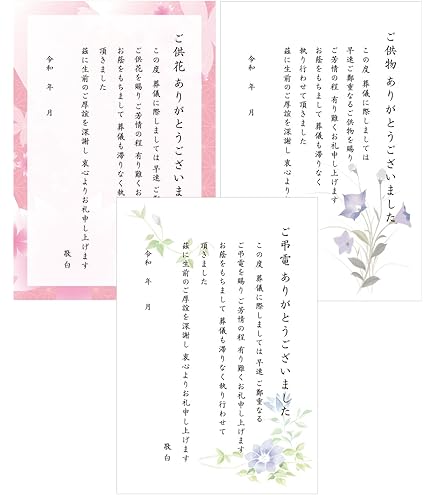 ご供花 ありがとうございま
この度 葬儀に際しましては 早速 ご
ご供花を賜り ご芳情の程 有り難くお
お蔭をもちまして 葬儀も滞りなく執
頂きました
茲に生前のご厚誼を深謝し 衷心よりお礼申し上げます
令和 年 月
敬白
ご供物 ありがとうございました
この度 葬儀に際しましては
早速ご鄭重なるご供物を賜り
ご芳情の程 有り難くお礼申し上げます
お蔭をもちまして 葬儀も滞りなく
執り行わせて頂きました
茲に生前のご厚誼を深謝し
令和 年 月
ご弔電 ありがとうございました
この度 葬儀に際しましては 早速 ご鄭重なる
ご弔電を賜り ご芳情の程 有り難くお礼申し上げます
お蔭をもちまして 葬儀も滞りなく執り行わせて
頂きました
茲に生前のご厚誼を深謝し 衷心よりお礼申し上げます
令和 年 月
敬白